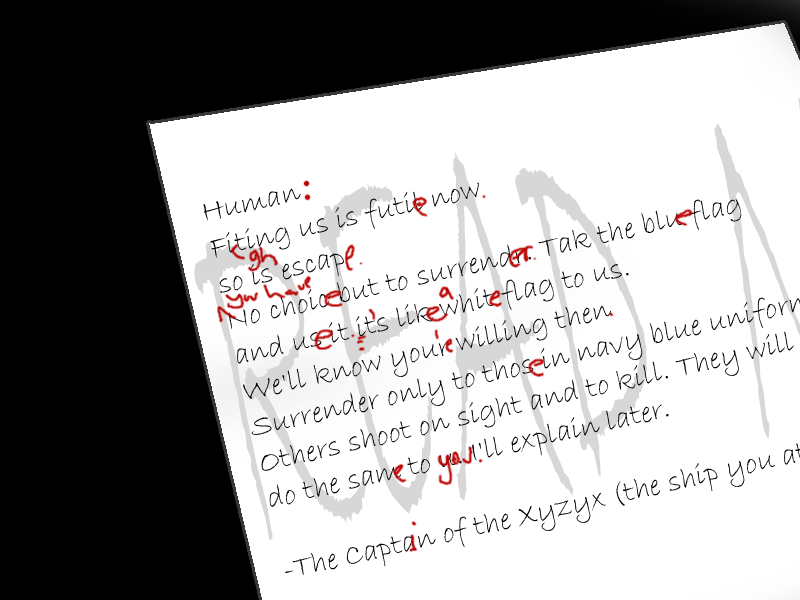 Human:
Fiting us is futile now.
gh
so is escape.
you have
No choice but to surrender. Tak the blue flag
and use it. it's like a white flag to us.
We'll know you're willing then.
Surrender only to those in navy blue uniform
Others shoot on sight and to kill. They will
do the same to you. I'll explain later.
-The Captain of the Xyzyx (the ship you at
READ